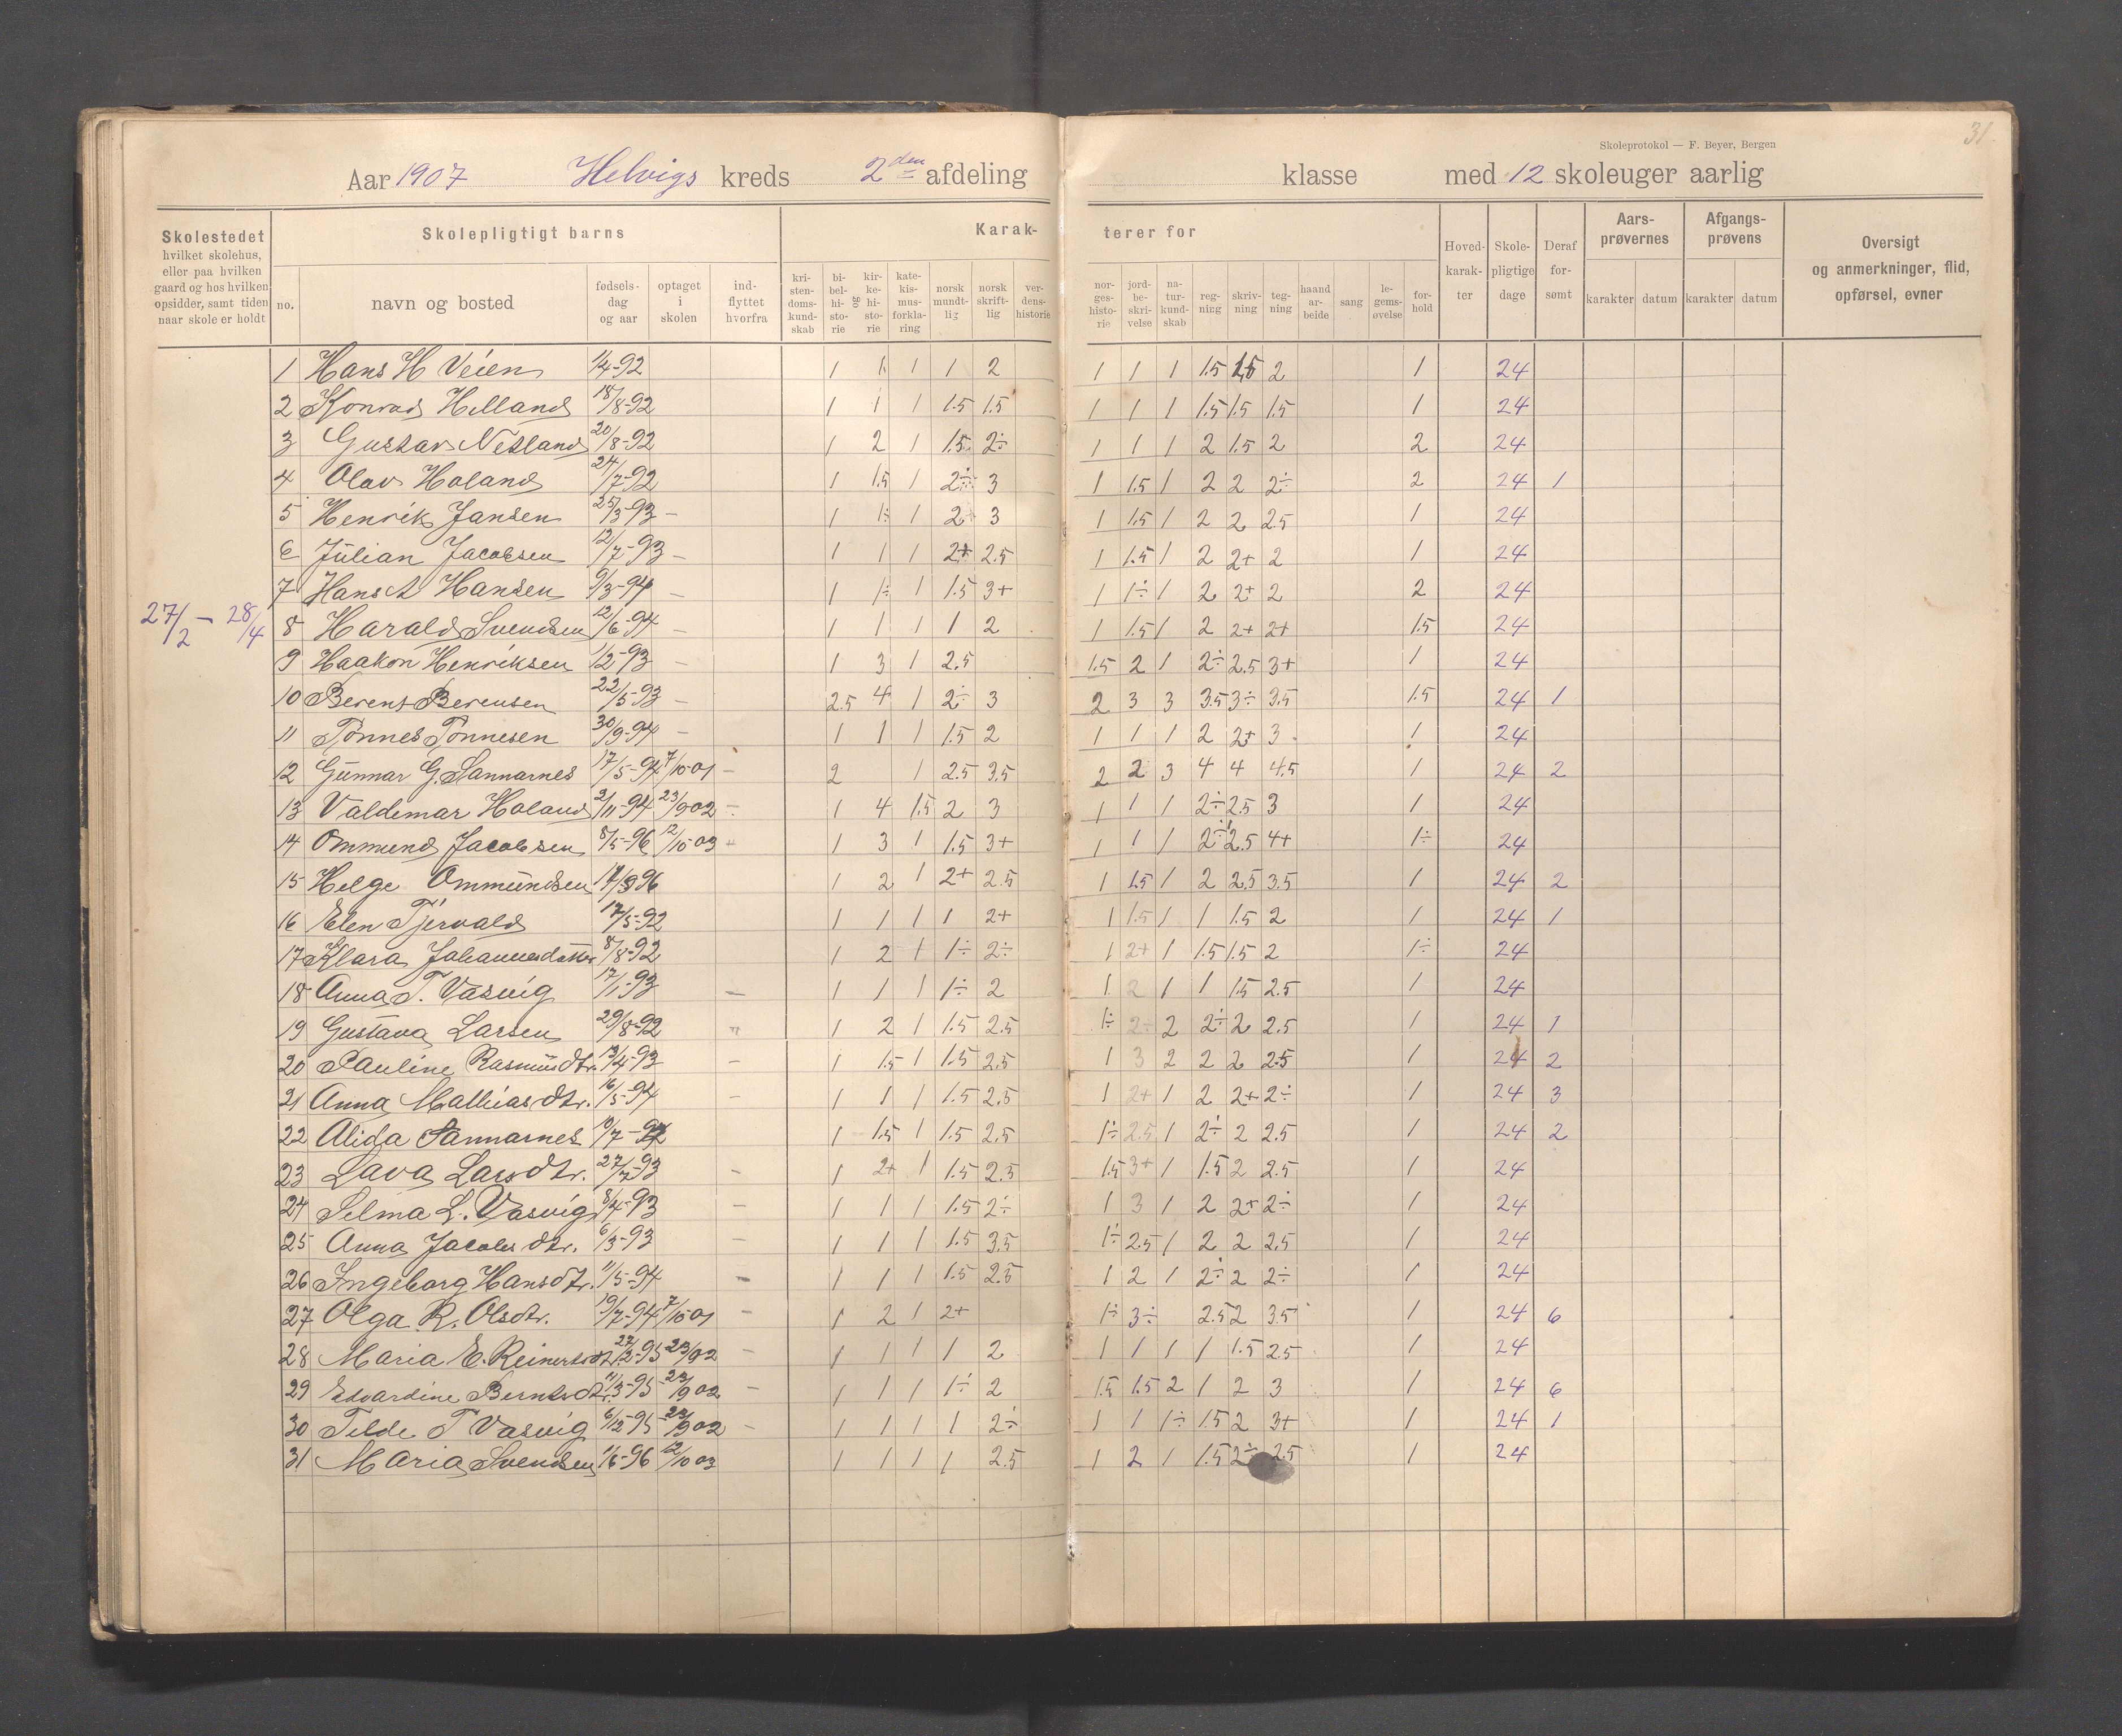 31.
Skoleprotokol — F. Beyer, Bergen
Aar 1907 Helvigs kreds 2den afdeling klasse med 12 skoleuger aarlig
Skolestedet hvilket skolehus, eller paa hvilken gaard og hos hvilken opsidder, samt tiden naar skole er holdt
Skolepligtigt barns
no. navn og bosted fødselsdag og aar optaget i skolen indflyttet hvorfra
Karakterer for
kristendomskundskab bibelhistorie kirkehistorie katekismusforklaring norsk mundtlig norsk skriftlig verdenshistorie norgeshistorie jordbeskrivelse naturkundskab regning skrivning tegning haandarbeide sang legemsøvelse forhold
Hovedkarakter Skolepligtige dage Deraf forsømt
Aarsprøvernes karakter datum
Afgangsprøvens karakter datum
Oversigt og anmerkninger, flid, opførsel, evner
27/2 - 28/4
1 Hans H Veien 1/4-92 1 1 1 1 2 1 1 1 1.5 1.5 2 1 24
2 Konrad Helland 18/8-92 1 1 1 1.5 1.5 1 1 1 1.5 1.5 1.5 1 24
3 Gustav Netland 20/8-92 1 2 1 1.5 2÷ 1 1 1 2 1.5 2 2 24
4 Olav Holand 24/7-92 1 1.5 1 2÷ 3 1 1.5 1 2 2 2÷ 2 24 1
5 Henrik Jansen 25/3-93 – 1 1÷ 1 2+ 3 1 1.5 1 2 2 2.5 1 24
6 Julian Jacobsen 12/7-93 – 1 1 1 2+ 2.5 1 1.5 1 2 2+ 2 1 24
7 Hans A Hansen 9/3-94 – 1 1÷ 1 1.5 3+ 1 1÷ 1 2 2+ 2 2 24
8 Harald Svendsen 12/6-94 – 1 1 1 1 2 1 1.5 1 2 2+ 2+ 1.5 24
9 Haakon Henriksen 1/2-93 – 1 3 1 2.5 1.5 2 1 2÷ 2.5 3+ 1 24
10 Berent Berensen 22/5-93 – 2.5 4 1 2÷ 3 2 3 3 3.5 3÷ 3.5 1.5 24 1
11 Tønnes Tønnesen 30/9-94 – 1 1 1 1.5 2 1 1 1 2 2+ 3 1 24
12 Gunnar G. Sannarnes 17/5-94 7/10-01 – 2 1 2.5 3.5 2 2 3 4 4 4.5 1 24 2
13 Valdemar Holand 2/11-94 23/9 02 – 1 4 1.5 2 3 1 1 1 2÷ 2.5 3 1 24
14 Ommund Jacobsen 8/5-96 12/10-03 1 3 1 1.5 3+ 1 1 1 2÷ 2.5 4+ 1÷ 24
15 Helge Ommundsen 14/3 96 1 2 1 2+ 2.5 1 1.5 1 2 2.5 3.5 1 24 2
16 Elen Tjervald 17/5-92 1 1 1 1 2+ 1 1.5 1 1 1.5 2 1 24 1
17 Klara Johannesdatter 8/8-92 1 2 1 1÷ 2÷ 1 2+ 1 1.5 1.5 2 1÷ 24
18 Anna T. Vasvig 17/1-93 – 1 1 1 1÷ 2 1 2 1 1 1.5 2.5 1 24
19 Gustava Larsen 29/8-92 " 1 2 1 1.5 2.5 1÷ 2÷ 2 2÷ 2 2.5 1 24 1
20 Pauline Rasmusdtr. 13/4-93 – 1 1.5 1 1.5 2.5 1 3 2 2 2 2.5 1 24 2
21 Anna Mathiasdtr. 16/5-94 – 1 1 1 1.5 2.5 1 2+ 1 2 2+ 2÷ 1 24 3
22 Alida Sannarnes 10/7-92 1 1.5 1 1.5 2.5 1÷ 2.5 1 2÷ 2 2.5 1 24 2
23 Lava Larsdtr. 27/7-93 – 1 2+ 1 1.5 2.5 1.5 3+ 1 1.5 2 2.5 1 24
24 Selma L. Vasvig 8/4-93 – 1 1 1 1.5 2÷ 1 3 1 2 2+ 2÷ 1 24
25 Anna Jacobsdtr. 6/3-93 – 1 1 1 1.5 3.5 1÷ 2.5 1 2 2 2.5 1 24
26 Ingeborg Hansdtr. 11/5-94 – 1 1 1 1.5 2.5 1 2 1 2÷ 2 2÷ 1 24
27 Olga R. Olsdtr. 19/7-94 7/10-01 – 1 2 1 2+ 1÷ 3÷ 2.5 2 3.5 1 24 6
28 Maria E. Reinertsdtr. 27/2-95 23/9 02 – 1 1 1 1 2 1 1 1 1 1.5 2.5 1 24
29 Edvardine Berntsdtr. 11/3-95 23/9 02 – 1 1 1 1÷ 2 1.5 1.5 2 1 2 3 1 24 6
30 Tilde T Vasvig 6/12-95 23/9 02 – 1 1 1 1 2÷ 1 1 1÷ 1.5 2 3+ 1 24 1
31 Maria Svendsen 1/6-96 12/10 03 1 1 1 1 2.5 1 2 1 1.5 2÷ 2.5 1 24